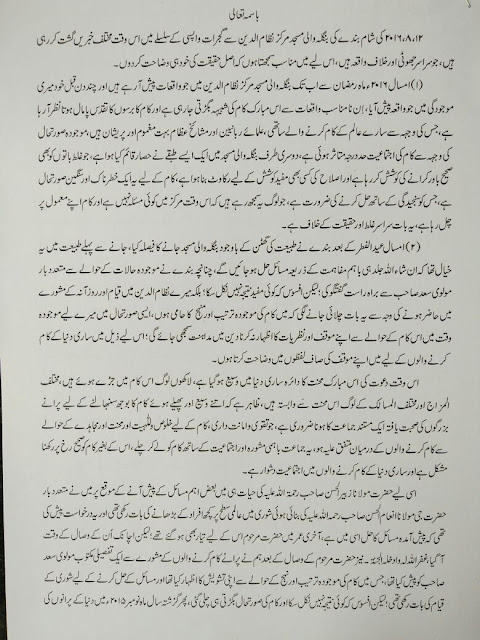 باسمہ تعالیٰ
۲۰۱۶،۸،۱۲ کی شام بندے کی بنگلہ والی مسجد مرکز نظام الدین سے گجرات واپسی کے سلسلے میں اس وقت مختلف خبریں گشت کر رہی
ہیں، جو سراسر جھوٹی اور خلاف واقعہ ہیں، اس لیے میں مناسب سمجھتا ہوں کہ اصل حقیقت کی خود ہی وضاحت کر دوں۔
(۱) امسال ۲۰۱۶ء ماہ رمضان سے اب تک بنگلہ والی مسجد مرکز نظام الدین میں جو واقعات پیش آرہے ہیں اور چند دن قبل خود میری
موجودگی میں جو واقعہ پیش آیا، ان نا مناسب واقعات سے اس مبارک کام کی شبیہ بگڑتی جا رہی ہے اور کام کا برسوں کا تقدس پامال ہوتا نظر آرہا
ہے، جس کی وجہ سے سارے عالم کے کام کرنے والے ساتھی، علمائے ربانیین اور مشائخ عظام بہت مغموم اور پریشان ہیں، موجودہ صورتحال
کی وجہ سے کام کی اجتماعیت حد درجہ متاثر ہوئی ہے، دوسری طرف بنگلہ والی مسجد میں ایک ایسے طبقے نے حصار قائم کیا ہوا ہے، جو غلط باتوں کو بھی
صحیح باور کرانے کی کوشش کر رہا ہے اور اصلاح کی کسی بھی مفید کوشش کے لیے رکاوٹ بنا ہوا ہے، کام کے لیے یہ ایک خطرناک اور سنگین صورتحال
ہے، جس کو سنجیدگی کے ساتھ حل کرنے کی ضرورت ہے، جو لوگ یہ سمجھ رہے ہیں کہ اس وقت مرکز میں کوئی مسئلہ نہیں ہے اور کام اپنے معمول پر
چل رہا ہے، یہ بات سراسر غلط اور حقیقت کے خلاف ہے۔
(۲) امسال عید الفطر کے بعد بندے نے طبیعت کی گھٹن کے باوجود بنگلہ والی مسجد جانے کا فیصلہ کیا، جانے سے پہلے طبیعت میں یہ
خیال تھا کہ ان شاء اللہ جلد ہی باہم مفاہمت کے ذریعہ مسائل حل ہو جائیں گے، چنانچہ بندے نے موجودہ حالات کے حوالے سے
مولوی سعد صاحب سے براہ راست گفتگو کی؛ لیکن افسوس کہ کوئی مفید نتیجہ نہیں نکل سکا؛ بلکہ میرے نظام الدین میں قیام اور روزآنہ کے مشورے
میں حاضر ہونے کی وجہ سے یہ بات چلائی جانے لگی کہ میں کام کی موجودہ ترتیب اور منہج کا حامی ہوں، ایسی صورتحال میں میرے لیے موجودہ
وقت میں اس کام کے حوالے سے اپنے موقف اور نظریات کا اظہار نہ کرنا دین میں مداہنت سمجھی جائے گی؛ اس لیے ذیل میں ساری دنیا کے کام
کرنے والوں کے لیے میں اپنے موقف کی صاف لفظوں میں وضاحت کرتا ہوں۔
اس وقت دعوت کی اس مبارک محنت کا دائرہ ساری دنیا میں وسیع ہو گیا ہے، لاکھوں لوگ اس کام میں جڑے ہوئے ہیں، مختلف
المزاج اور مختلف المسالک کے لوگ اس محنت سے وابستہ ہیں، ظاہر ہے کہ اتنے وسیع اور پھیلے ہوئے کام کا بوجھ سنبھالنے کے لیے پرانے
بزرگوں کی صحبت یافتہ ایک معتمد جماعت کا ہونا ضروری ہے، جو تقوی وامانت داری، کام کے لیے خلوص وللہیت اور محنت اور مجاہدے کے حوالے
سے کام کرنے والوں کے درمیان متفق علیہ ہو، یہ جماعت باہمی مشورہ اور اجتماعیت کے ساتھ کام کو لے کر چلے، اس کے بغیر کام کو صحیح رخ پر رکھنا
مشکل ہے اور ساری دنیا کے کام کرنے والوں میں اجتماعیت دشوار ہے۔
اسی لیے حضرت مولانا زبیر الحسن صاحب رحمۃ اللہ علیہ کی حیات ہی میں بعض اہم مسائل کے پیش آنے کے موقع پر میں نے متعدد بار
حضرت جی مولانا انعام الحسن صاحب رحمۃ اللہ علیہ کی بنائی ہوئی شوری میں عالمی سطح پر کچھ افراد کے بڑھانے کی بات رکھی تھی اور یہ درخواست پیش کی
تھی کہ پیش آمدہ مسائل کا حل اسی میں ہے، آخری عمر میں حضرت مرحوم اس کے لیے تیار بھی ہو گئے تھے؛ لیکن اچانک اُن کے وصال کا وقت
آگیا، غفر اللہ لہ وادخلہ الجنۃ۔ نیز حضرت مرحوم کے وصال کے بعد ہم نے پرانے کام کرنے والوں کے مشورے سے ایک تفصیلی مکتوب مولوی سعد
صاحب کو پیش کیا تھا، جس میں کام کی موجودہ ترتیب اور منہج کے حوالے سے اپنی تشویش کا اظہار کیا تھا اور مسائل کے حل کرنے کے لیے شوری کے
قیام کی بات رکھی تھی؛ لیکن افسوس کہ کوئی نتیجہ نہیں نکل سکا اور کام کی صورتحال بگڑتی ہی چلی گئی، پھر گزشتہ سال ماہ نومبر ۲۰۱۵ء میں دنیا کے پرانوں کی